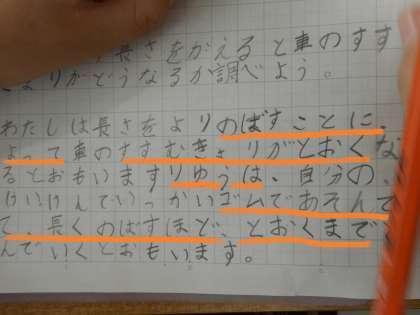 長さをかえると車のすす
きょりがどうなるか調べよう。
わたしは長さをよりのばすことに、
よって車のすすむきょりがとおくな
るとおもいますりゆうは、自分の、
けいけんでいっかいゴムであそんで
て、長くのばすほど、とおくまで
んでいくとおもいます。